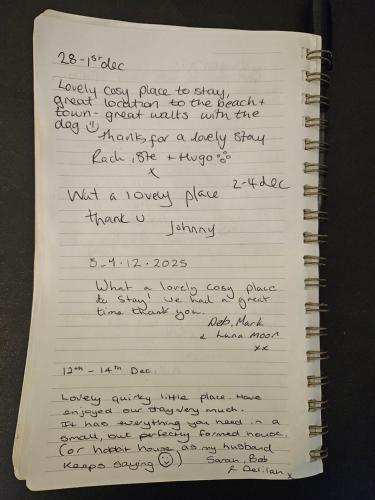 28-1st dec
Lovely cosy place to stay,
great location to the beach +
town - great walks with the
dog
thanks for a lovely stay
Rach, Ste + Hugo
x
2-4 dec
Wat a lovely place
thank u
Johnny
5-9.12.2025
What a lovely cosy place
to stay! We had a great
time thank you.
Deb, Mark
& Luna Moon
xx
12th - 14th Dec.
Lovely quirky little place. Have
enjoyed our stay very much.
It has everything you need in a
small, but perfectly formed house.
(or house as my husband
keeps saying )
Sarah, Bob
& Delilah x